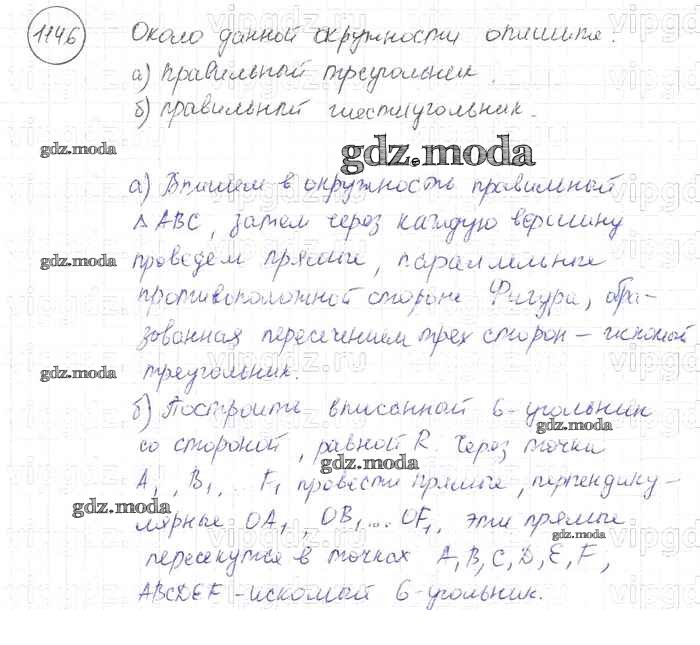 1146 Около данной окружности опишите:
а) правильный треугольник.
б) правильный шестиугольник.
gdz.moda
gdz.moda
а) Впишем в окружность правильный
Δ ABC, затем через каждую вершину
gdz.moda
проведем прямые, параллельные
противоположной стороне Фигура, обра-
зованная пересечением трех сторон – искомый
gdz.moda
треугольник.
б) Построить вписанный 6-угольник
gdz.moda
со стороной, равной R. Через точки
gdz.moda
A₁, B₁, ... F₁ провести прямые, перпендику-
gdz.moda
лярные OA₁, OB₁, ... OF₁, эти прямые
gdz.moda
пересекутся в точках A, B, C, D, E, F,
ABCDEF – искомый 6-угольник.